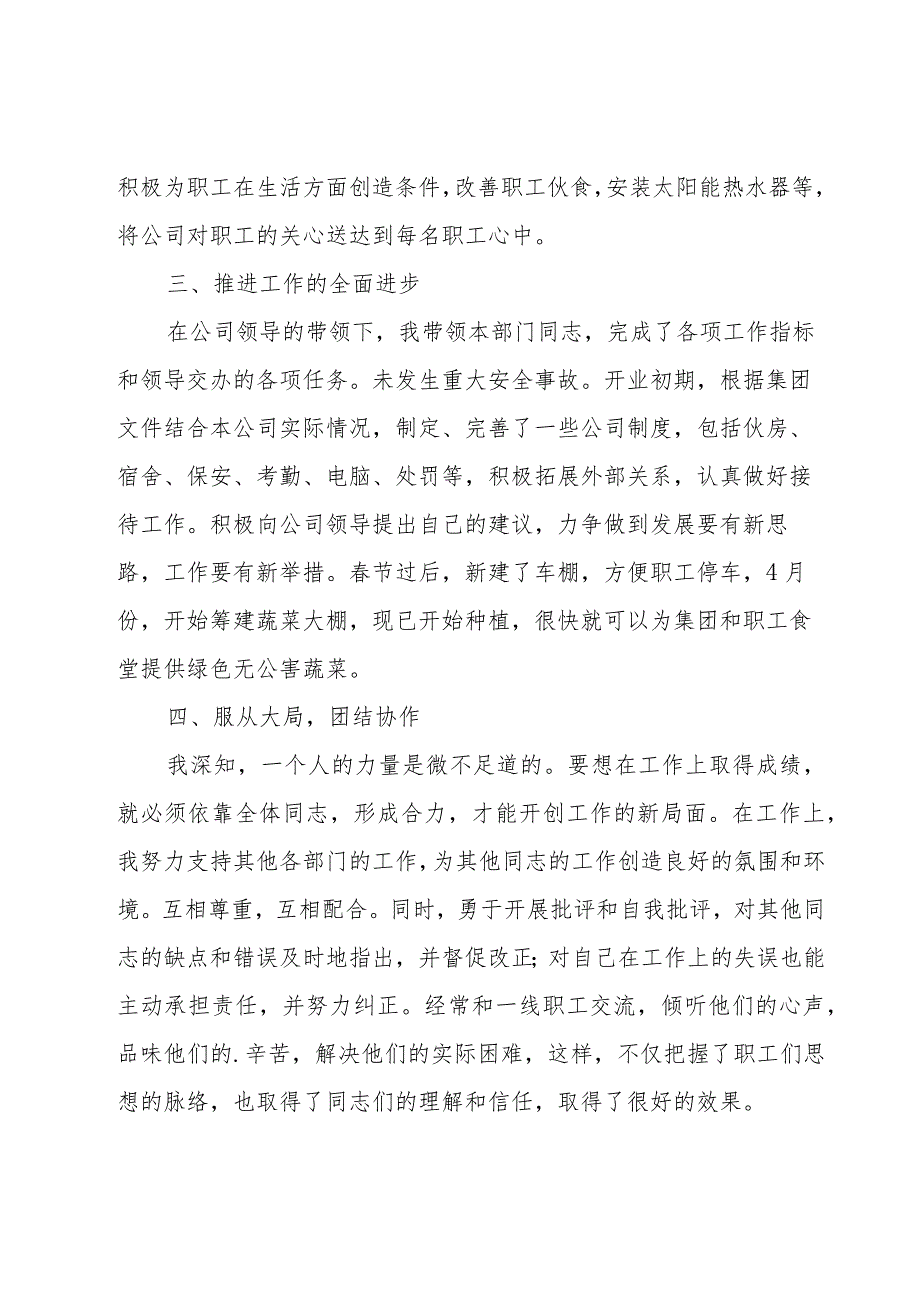 积极为职工在生活方面创造条件,改善职工伙食,安装太阳能热水器等,
将公司对职工的关心送达到每名职工心中。
三、推进工作的全面进步
在公司领导的带领下，我带领本部门同志，完成了各项工作指标
和领导交办的各项任务。未发生重大安全事故。开业初期，根据集团
文件结合本公司实际情况，制定、完善了一些公司制度，包括伙房、
宿舍、保安、考勤、电脑、处罚等，积极拓展外部关系，认真做好接
待工作。积极向公司领导提出自己的建议，力争做到发展要有新思
路，工作要有新举措。春节过后，新建了车棚，方便职工停车，4 月
份，开始筹建蔬菜大棚，现已开始种植，很快就可以为集团和职工食
堂提供绿色无公害蔬菜。
四、服从大局，团结协作
我深知，一个人的力量是微不足道的。要想在工作上取得成绩，
就必须依靠全体同志，形成合力，才能开创工作的新局面。在工作上，
我努力支持其他各部门的工作,为其他同志的工作创造良好的氛围和环
境。互相尊重，互相配合。同时，勇于开展批评和自我批评，对其他同
志的缺点和错误及时地指出，并督促改正;对自己在工作上的失误也能
主动承担责任，并努力纠正。经常和一线职工交流，倾听他们的心声，
品味他们的.辛苦，解决他们的实际困难，这样，不仅把握了职工们思
想的脉络，也取得了同志们的理解和信任，取得了很好的效果。